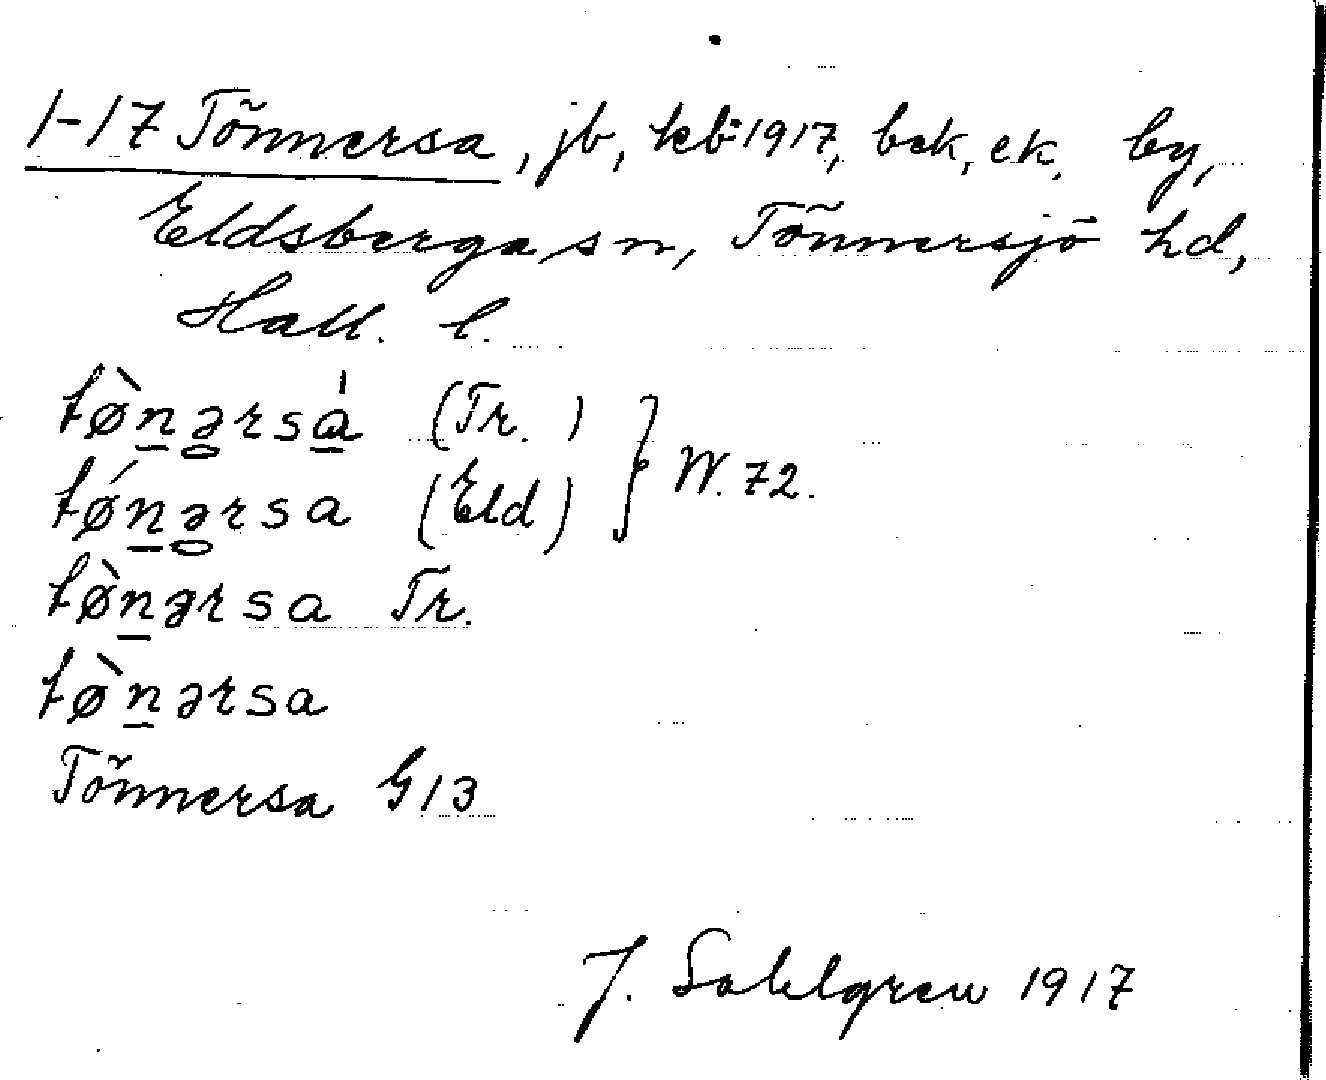 1-17 Tönnersa, jb, kb 1917, bek, ek. by,
Eldsberga sn, Tönnersjö hd,
Hall. l.
tø̀n̲ərsa̲̍ (Tr.)
tǿn̲ərsa (Eld) } W. 72.
tø̀n̲ərsa Tr.
tø̀n̲ərsa
Tönnersa G13
J. Sahlgren 1917